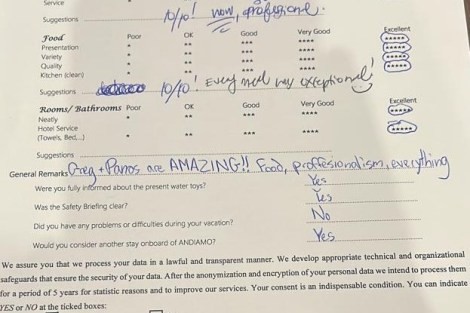 Service
Suggestions 10/10! wow, professional.
Food Poor OK Good Very Good Excellent
Presentation * ** *** **** *****
Variety * ** *** **** *****
Quality * ** *** **** *****
Kitchen (clean) * ** *** **** *****
Suggestions 10/10! Every meal was exceptional!
Rooms/ Bathrooms Poor OK Good Very Good Excellent
Neatly * ** *** **** *****
Hotel Service
(Towels, Bed,...) * ** *** **** *****
Suggestions
General Remarks Greg + Panos are AMAZING!! Food, proffesionalism, everything
Were you fully informed about the present water toys? Yes
Was the Safety Briefing clear? Yes
Did you have any problems or difficulties during your vacation? No
Would you consider another stay onboard of ANDIAMO? Yes
We assure you that we process your data in a lawful and transparent manner. We develop appropriate technical and organizational
safeguards that ensure the security of your data. After the anonymization and encryption of your personal data we intend to process them
for a period of 5 years for statistic reasons and to improve our services. Your consent is an indispensable condition. You can indicate
YES or NO at the ticked boxes: